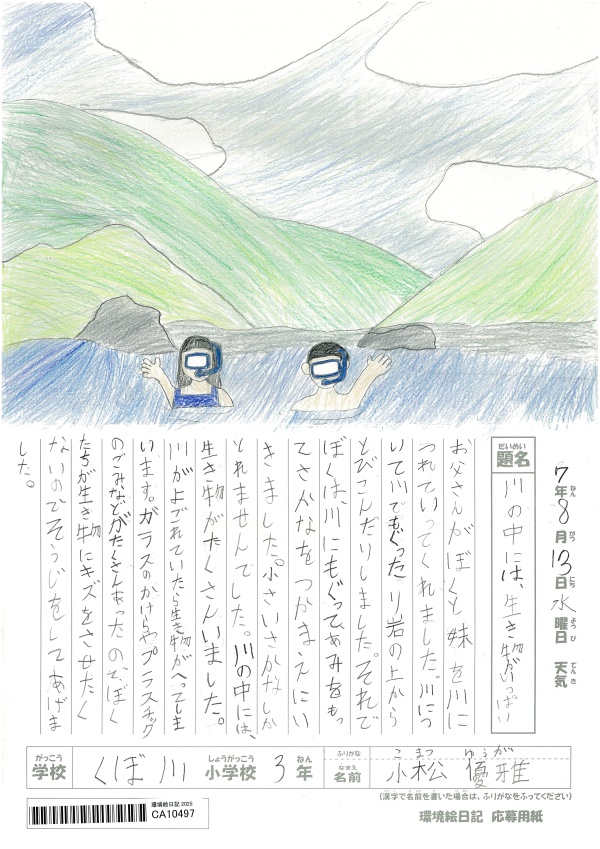 7年8月13日水曜日 天気
ねん がつ にち ようび てんき
だいめい
題名
川の中には、生き物がいっぱい
お父さんがぼくと妹を川に
つれていってくれました。川につ
いて川でもぐったり岩の上から
とびこんだりしました。それで
ぼくは、川にもぐってあみをもっ
てさかなをつかまえにい
きました。小さいさかなしか
とれませんでした。川の中には、
生き物がたくさんいました。
川がよごれていたら生き物がへってしま
います。ガラスのかけらやプラスチック
のごみなどがたくさんあったので、ぼく
たちが生き物にキズをさせたく
ないのでそうじをしてあげま
した。
がっこう しょうがっこう ねん
学校 くぼ川 小学校 3年
ふりがな こまつ ゆうが
なまえ
名前 小松 優雅
(漢字で名前を書いた場合は、ふりがなをふってください)
環境絵日記 2025
CA10497
環境絵日記 応募用紙